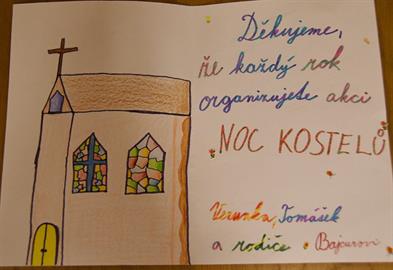 Děkujeme,
že každý rok
organizujete akci
NOC KOSTELŮ
Verunka, Tomášek
a rodiče Bajcurovi